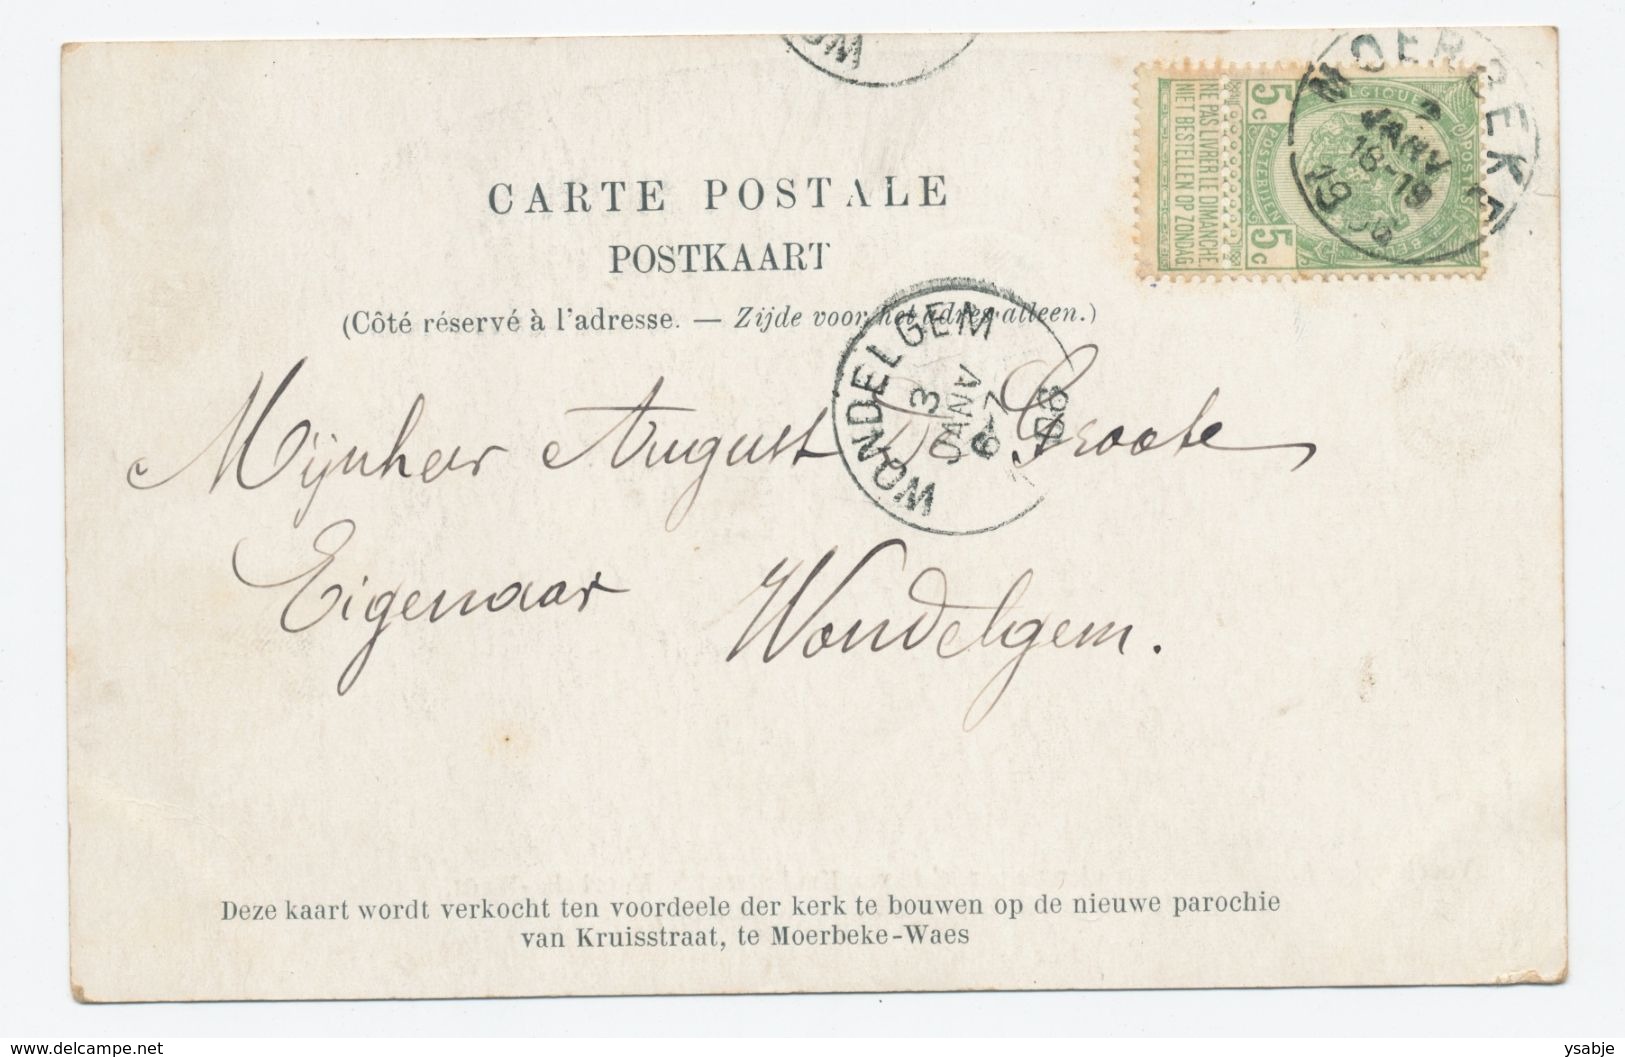 CARTE POSTALE
POSTKAART
(Côté réservé à l'adresse. — Zijde voor het adres alleen.)
MOERBEKE
2
JANV
18-19
19
5c
5c
NE PAS LIVRER LE DIMANCHE
NIET BESTELLEN OP ZONDAG
WONDELGEM
3
JANV
6-7
Mijnheer August De Groote
Eigenaar Wondelgem.
Deze kaart wordt verkocht ten voordeele der kerk te bouwen op de nieuwe parochie
van Kruisstraat, te Moerbeke-Waes
www.delcampe.net
ysabje